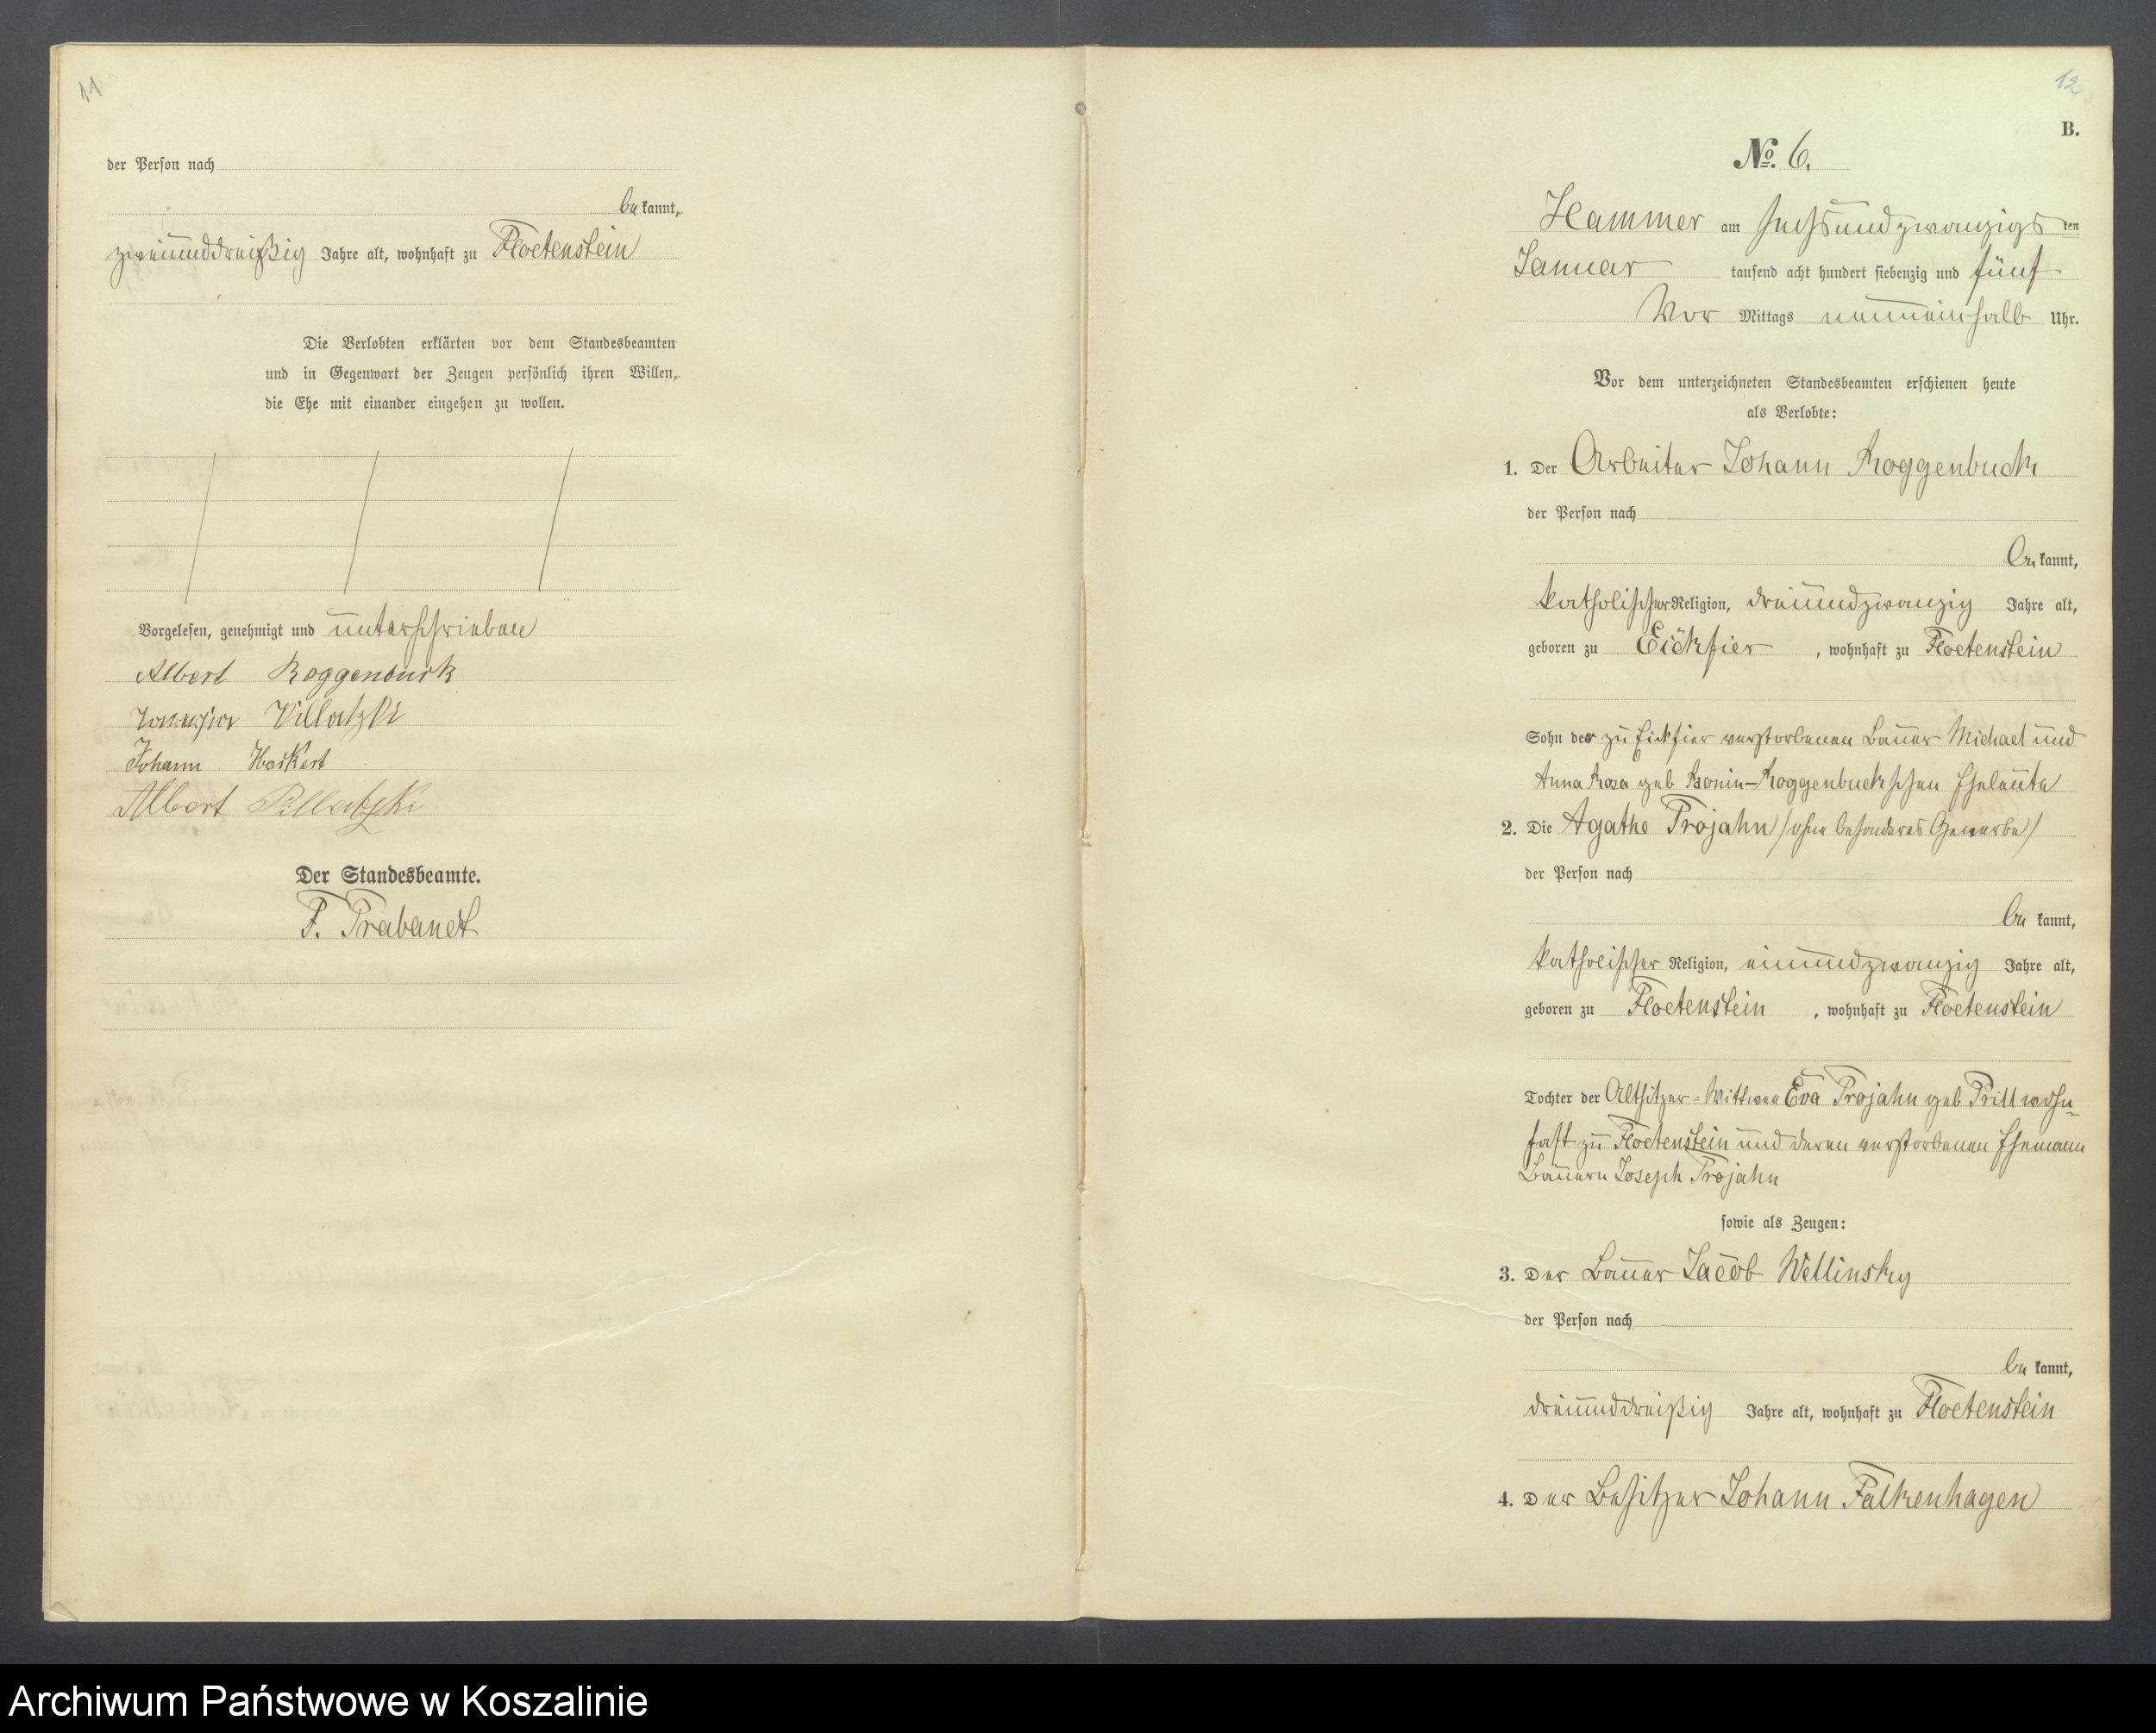 11
der Person nach
be kannt,
zweiunddreißig Jahre alt, wohnhaft zu Floetenstein
Die Verlobten erklärten vor dem Standesbeamten
und in Gegenwart der Zeugen persönlich ihren Willen,
die Ehe mit einander eingehen zu wollen.
Vorgelesen, genehmigt und unterschrieben
Albert Roggenbuck
Villatzki
Johann Haskert
Albert Pillatzki
Der Standesbeamte.
F. Prabandt
12
B.
No. 6.
Hammer am sechsundzwanzigs ten
Januar tausend acht hundert siebenzig und fünf
Vor Mittags neuneinhalb Uhr.
Vor dem unterzeichneten Standesbeamten erschienen heute
als Verlobte:
1. Der Arbeiter Johann Roggenbuck
der Person nach
be kannt,
katholischer Religion, dreiundzwanzig Jahre alt,
geboren zu Eickfier, wohnhaft zu Floetenstein
Sohn der zu Eickfier verstorbenen Bauer Michael und
Anna Rosa geb Ronin-Roggenbuckschen Eheleute
2. Die Agathe Trojahn /ohne besonderes Gewerbe/
der Person nach
be kannt,
katholischer Religion, einundzwanzig Jahre alt,
geboren zu Floetenstein, wohnhaft zu Floetenstein
Tochter der Altsitzer-Wittwee Eva Trojahn geb Prill wohn-
haft zu Floetenstein und deren verstorbenen Ehemann
Bauern Joseph Trojahn
sowie als Zeugen:
3. Der Bauer Jacob Wellinsky
der Person nach
be kannt,
dreiunddreißig Jahre alt, wohnhaft zu Floetenstein
4. Der Besitzer Johann Falkenhagen
Archiwum Państwowe w Koszalinie